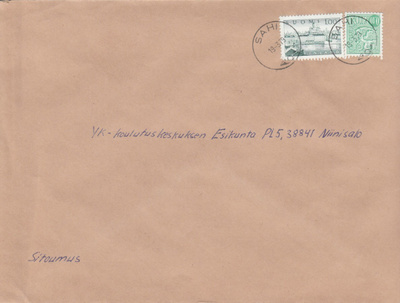 SUOMI 100
SAHI
SAHI
YK-koulutuskeskuksen Esikunta PL5, 38841 Niinisalo
Sitoumus